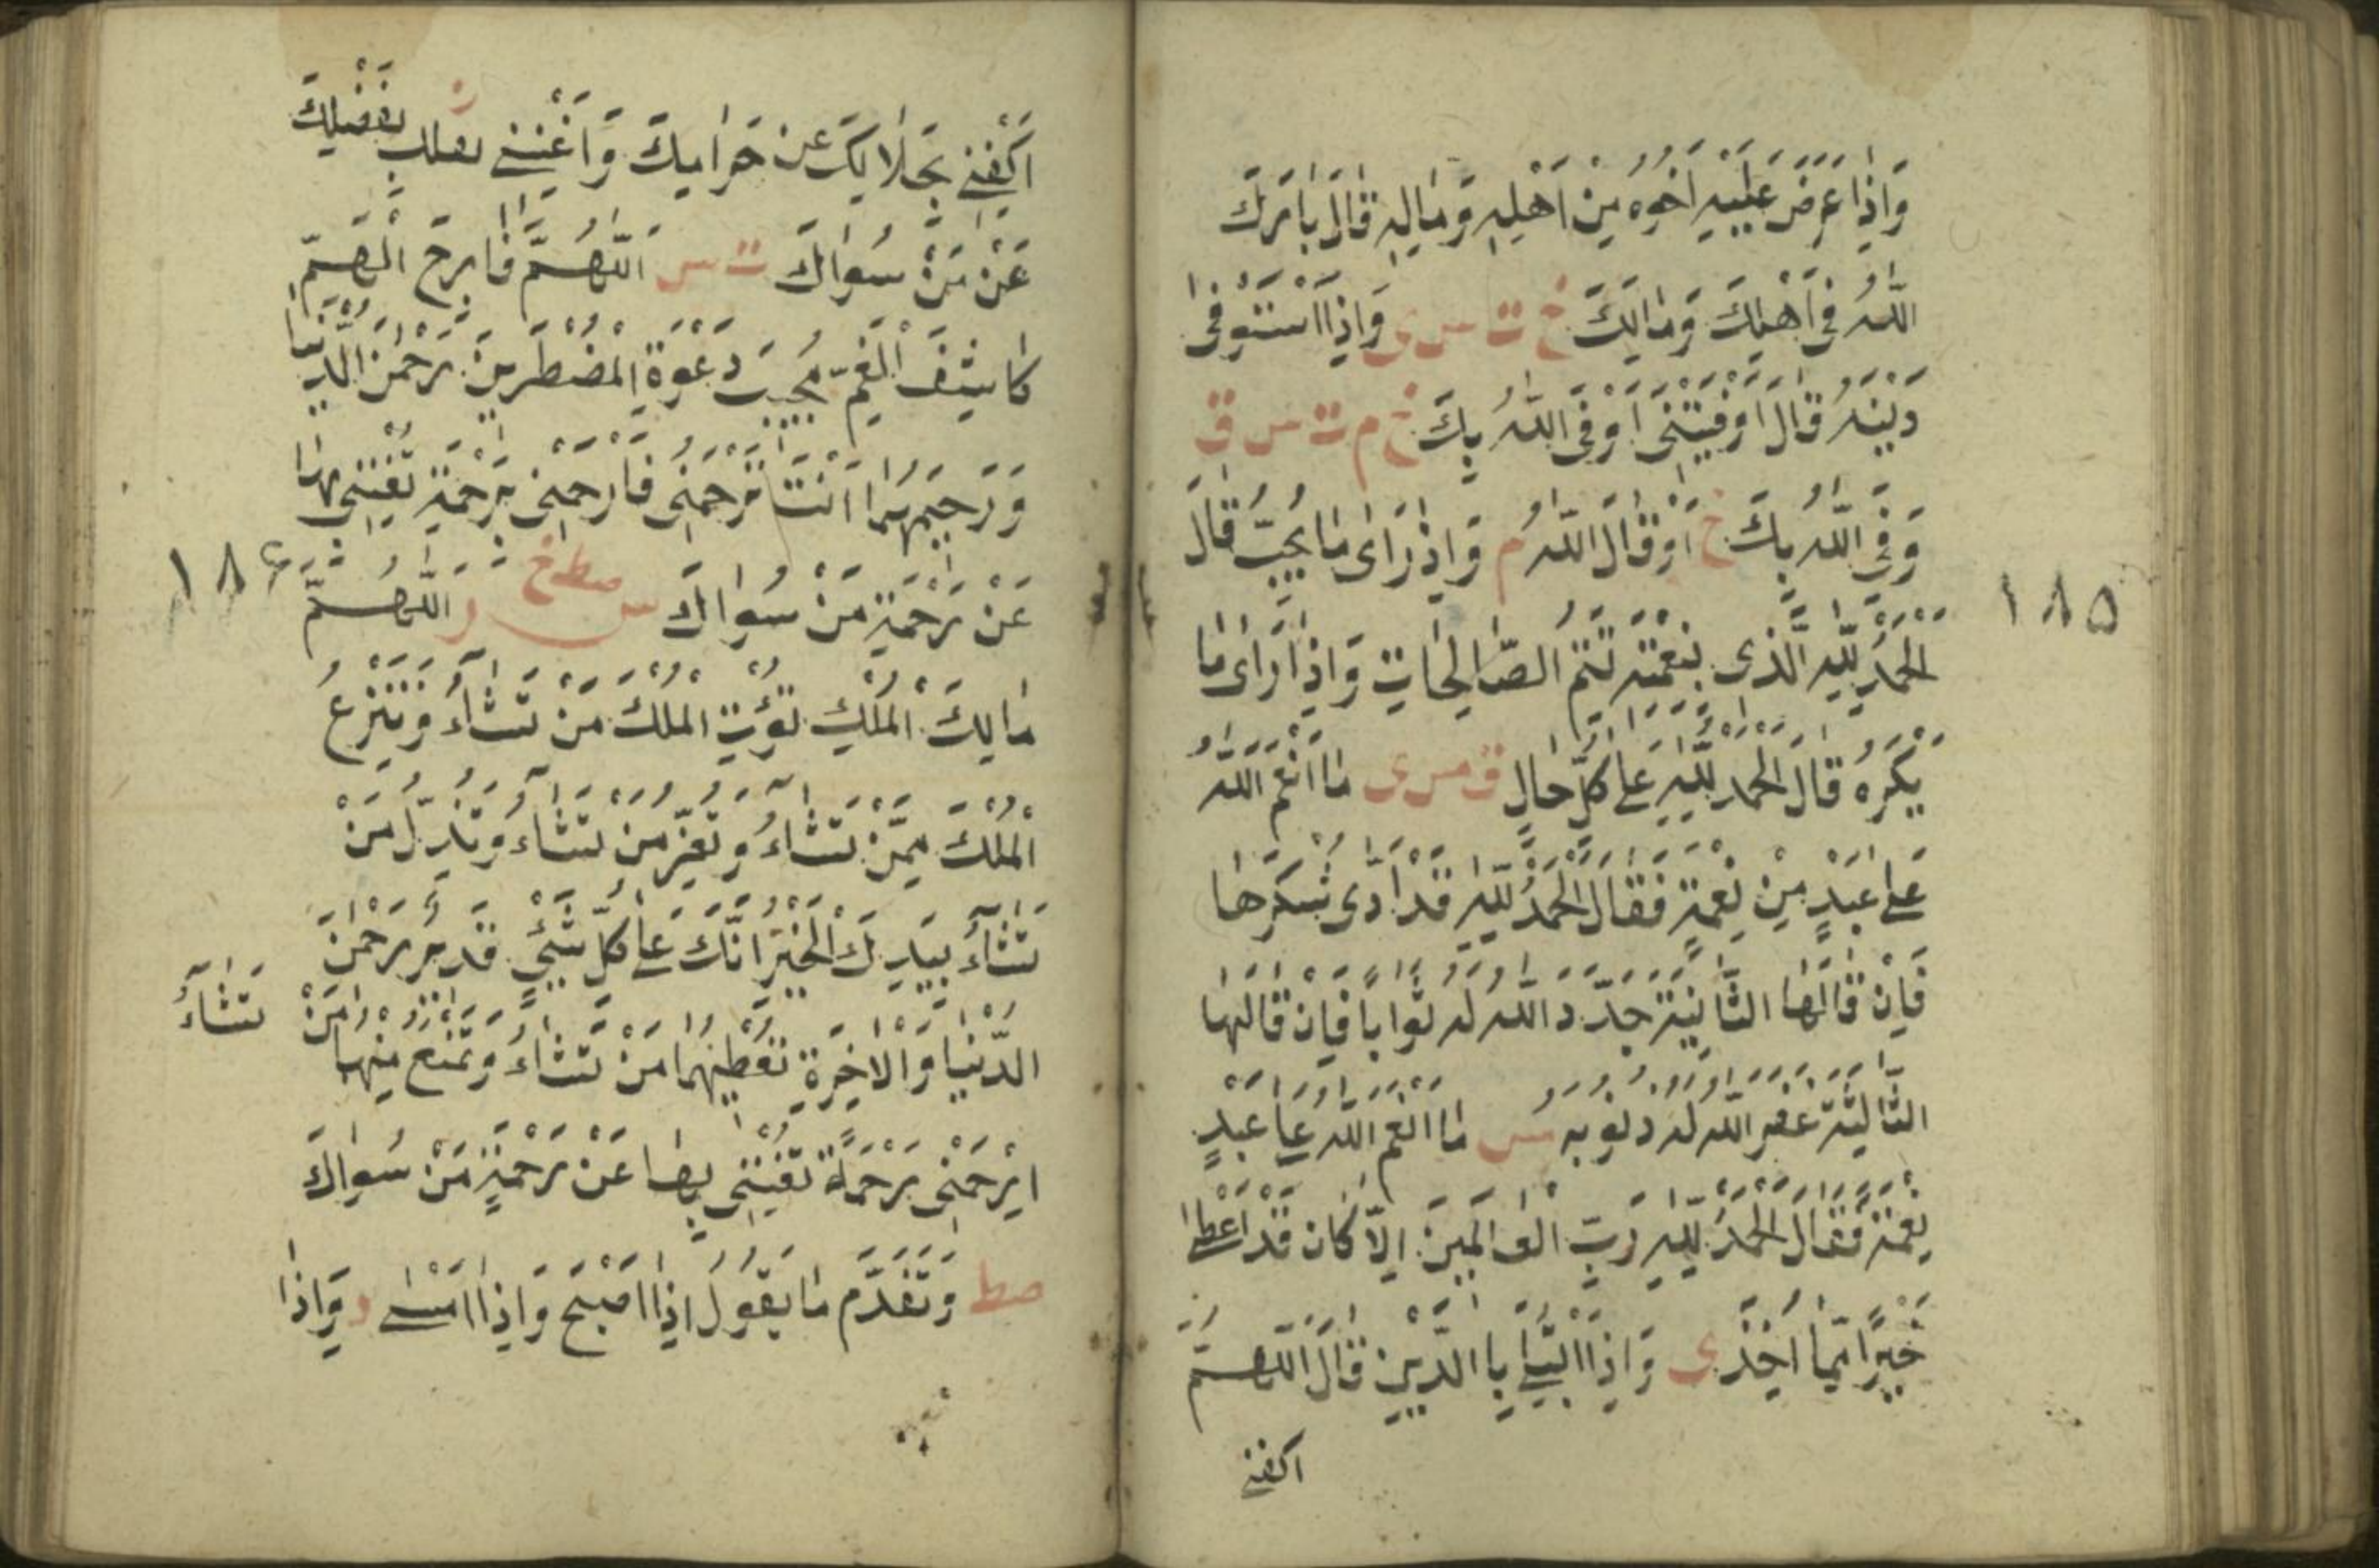 وَاِذَا عَرَضَ عَلَيْهِ اَخُوهُ مِنْ اَهْلِهِ وَمَالِهِ قَالَ بَارَكَ
اللّٰهُ فِى اَهْلِكَ وَمَالِكَ خ ت س ى وَاِذَا اسْتَوْفٰى
دَيْنَهُ قَالَ اَوْفَيْتَنِى اَوْفَى اللّٰهُ بِكَ خ م ت س ق
وَفَى اللّٰهُ بِكَ خ اَوْ قَالَ اللّٰهُ م وَاِذْ رَاٰى مَا يُحِبُّ قَالَ
اَلْحَمْدُ لِلّٰهِ الَّذِى بِنِعْمَتِهِ تَتِمُّ الصَّالِحَاتِ وَاِذَا رَاٰى مَا
يَكْرَهُ قَالَ الْحَمْدُ لِلّٰهِ عَلٰى كُلِّ حَالٍ ق مس ى مَا اَنْعَمَ اللّٰهُ
عَلٰى عَبْدٍ مِنْ نِعْمَةٍ فَقَالَ الْحَمْدُ لِلّٰهِ قَدْ اَدّٰى شُكْرَهَا
فَاِنْ قَالَهَا الثَّانِيَةَ جَدَّدَ اللّٰهُ لَهُ ثَوَابًا فَاِنْ قَالَهَا
الثَّالِثَةَ غَفَرَ اللّٰهُ لَهُ ذُنُوبَهُ مس مَا اَنْعَمَ اللّٰهُ عَلٰى عَبْدٍ
نِعْمَةً فَقَالَ الْحَمْدُ لِلّٰهِ رَبِّ الْعَالَمِينَ اِلَّا كَانَ قَدْ اَعْطٰى
خَيْرًا مِمَّا اَخَذَ ى وَاِذَا ابْتُلِىَ بِالدَّيْنِ قَالَ اللّٰهُمَّ
اكفنى
١٨٥
اكْفِنِى بِحَلَالِكَ عَنْ حَرَامِكَ وَاَغْنِنِى بِفَضْلِكَ
عَنْ مَنْ سِوَاكَ ت مس اَللّٰهُمَّ فَارِجَ الْهَمِّ
كَاشِفَ الْغَمِّ مُجِيبَ دَعْوَةِ الْمُضْطَرِّينَ رَحْمٰنَ الدُّنْيَا
وَرَحِيمَهُمَا اَنْتَ تَرْحَمُنِى فَارْحَمْنِى بِرَحْمَةٍ تُغْنِنِى بِهَا
عَنْ رَحْمَةِ مَنْ سِوَاكَ مس صط خ ر اَللّٰهُمَّ
مَالِكَ الْمُلْكِ تُؤْتِى الْمُلْكَ مَنْ تَشَآءُ وَتَنْزِعُ
الْمُلْكَ مِمَّنْ تَشَاءُ وَتُعِزُّ مَنْ تَشَاءُ وَتُذِلُّ مَنْ
تَشَآءُ بِيَدِكَ الْخَيْرُ اِنَّكَ عَلٰى كُلِّ شَىْءٍ قَدِيرٌ رَحْمٰنَ
الدُّنْيَا وَالْاٰخِرَةِ تُعْطِيهُمَا مَنْ تَشَاءُ وَتَمْنَعُ مِنْهُمَا مَنْ تَشَآءُ
ارْحَمْنِى رَحْمَةً تُغْنِنِى بِهَا عَنْ رَحْمَةِ مَنْ سِوَاكَ
صط وَتَقَدَّمَ مَا يَقُولُ اِذَا اَصْبَحَ وَاِذَا اَمْسٰى د وَاِذَا
١٨٦